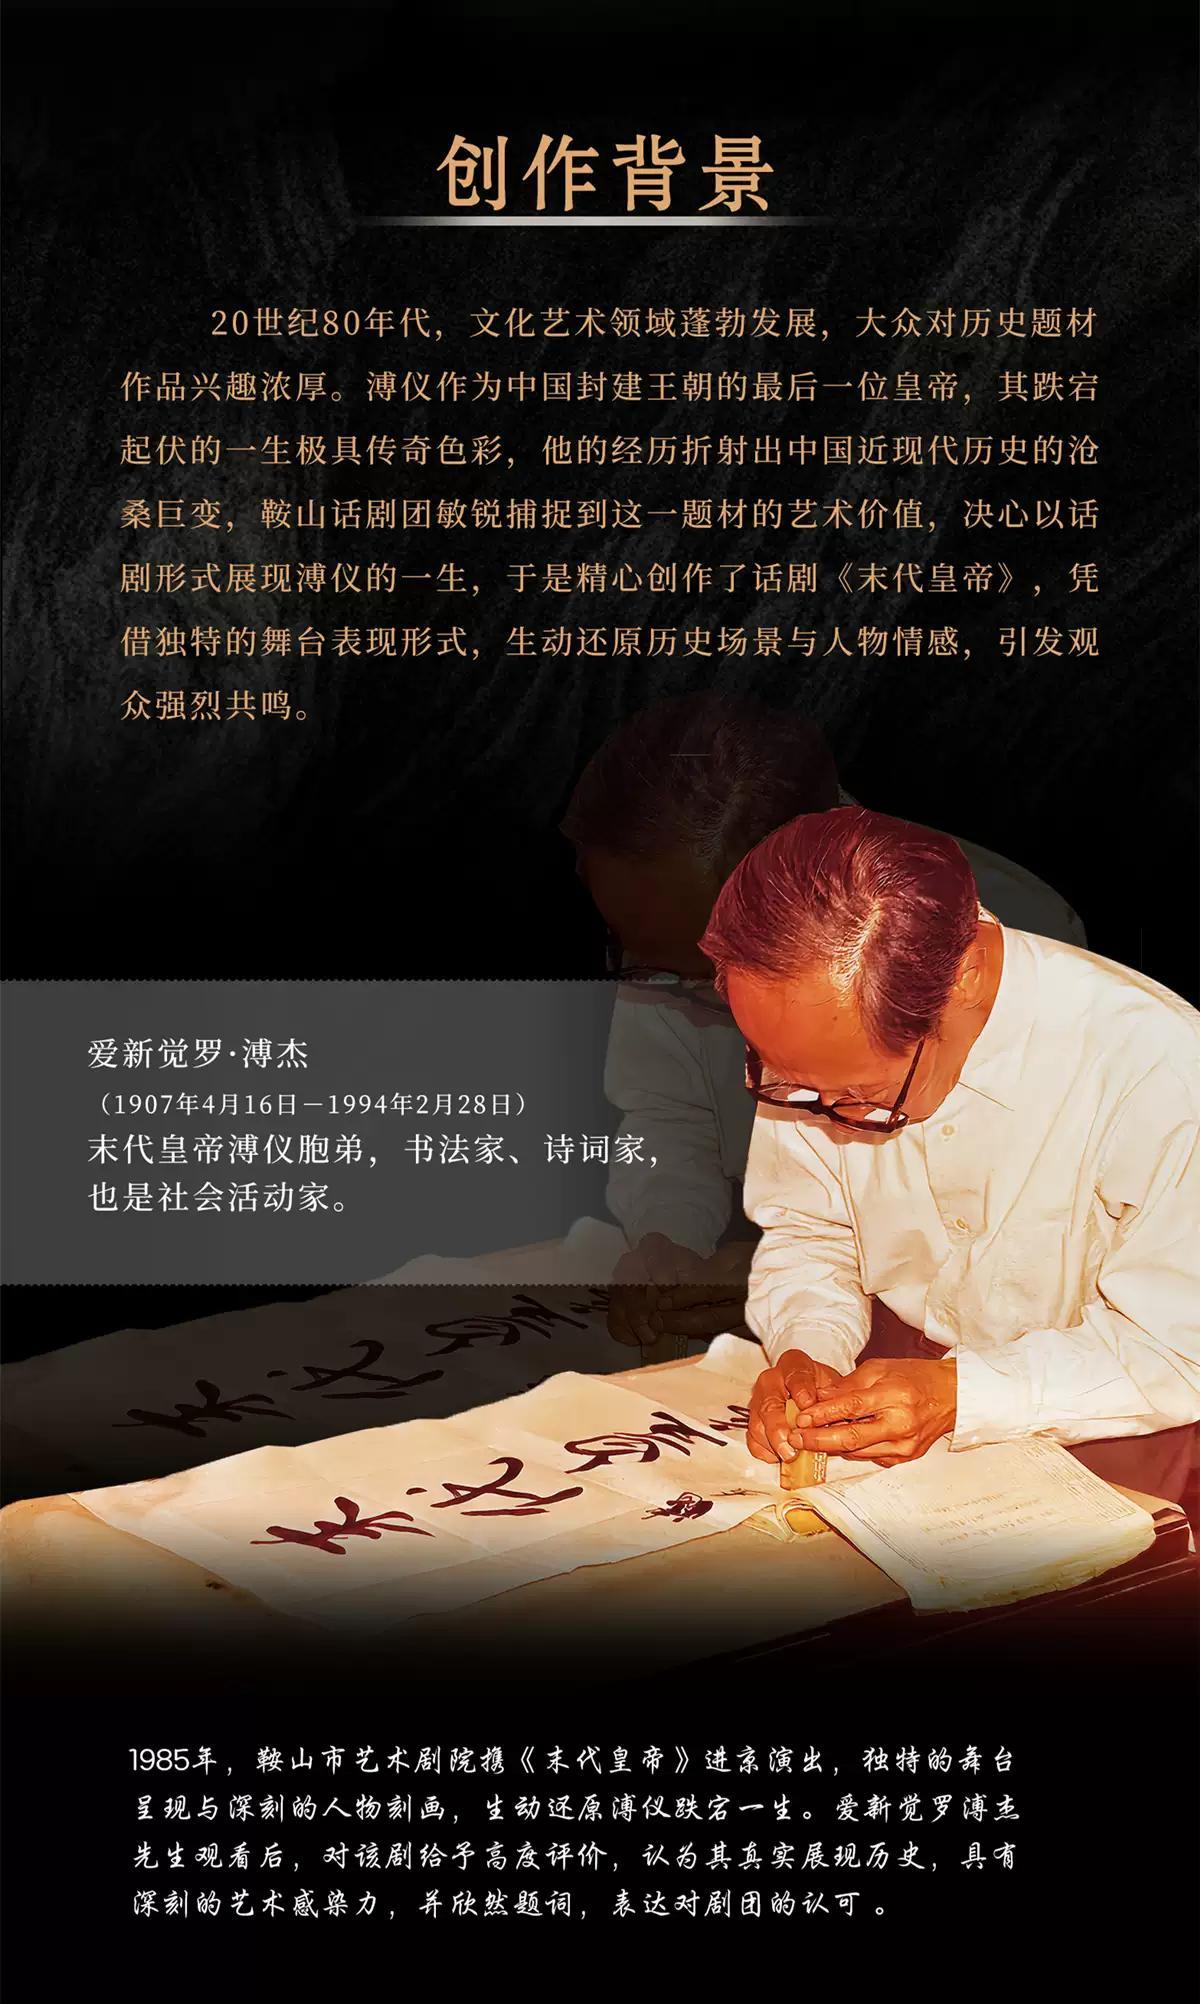 创作背景
20世纪80年代，文化艺术领域蓬勃发展，大众对历史题材
作品兴趣浓厚。溥仪作为中国封建王朝的最后一位皇帝，其跌宕
起伏的一生极具传奇色彩，他的经历折射出中国近现代历史的沧
桑巨变，鞍山话剧团敏锐捕捉到这一题材的艺术价值，决心以话
剧形式展现溥仪的一生，于是精心创作了话剧《末代皇帝》，凭
借独特的舞台表现形式，生动还原历史场景与人物情感，引发观
众强烈共鸣。
爱新觉罗·溥杰
（1907年4月16日－1994年2月28日）
末代皇帝溥仪胞弟，书法家、诗词家，
也是社会活动家。
1985年，鞍山市艺术剧院携《末代皇帝》进京演出，独特的舞台
呈现与深刻的人物刻画，生动还原溥仪跌宕一生。爱新觉罗溥杰
先生观看后，对该剧给予高度评价，认为其真实展现历史，具有
深刻的艺术感染力，并欣然题词，表达对剧团的认可。